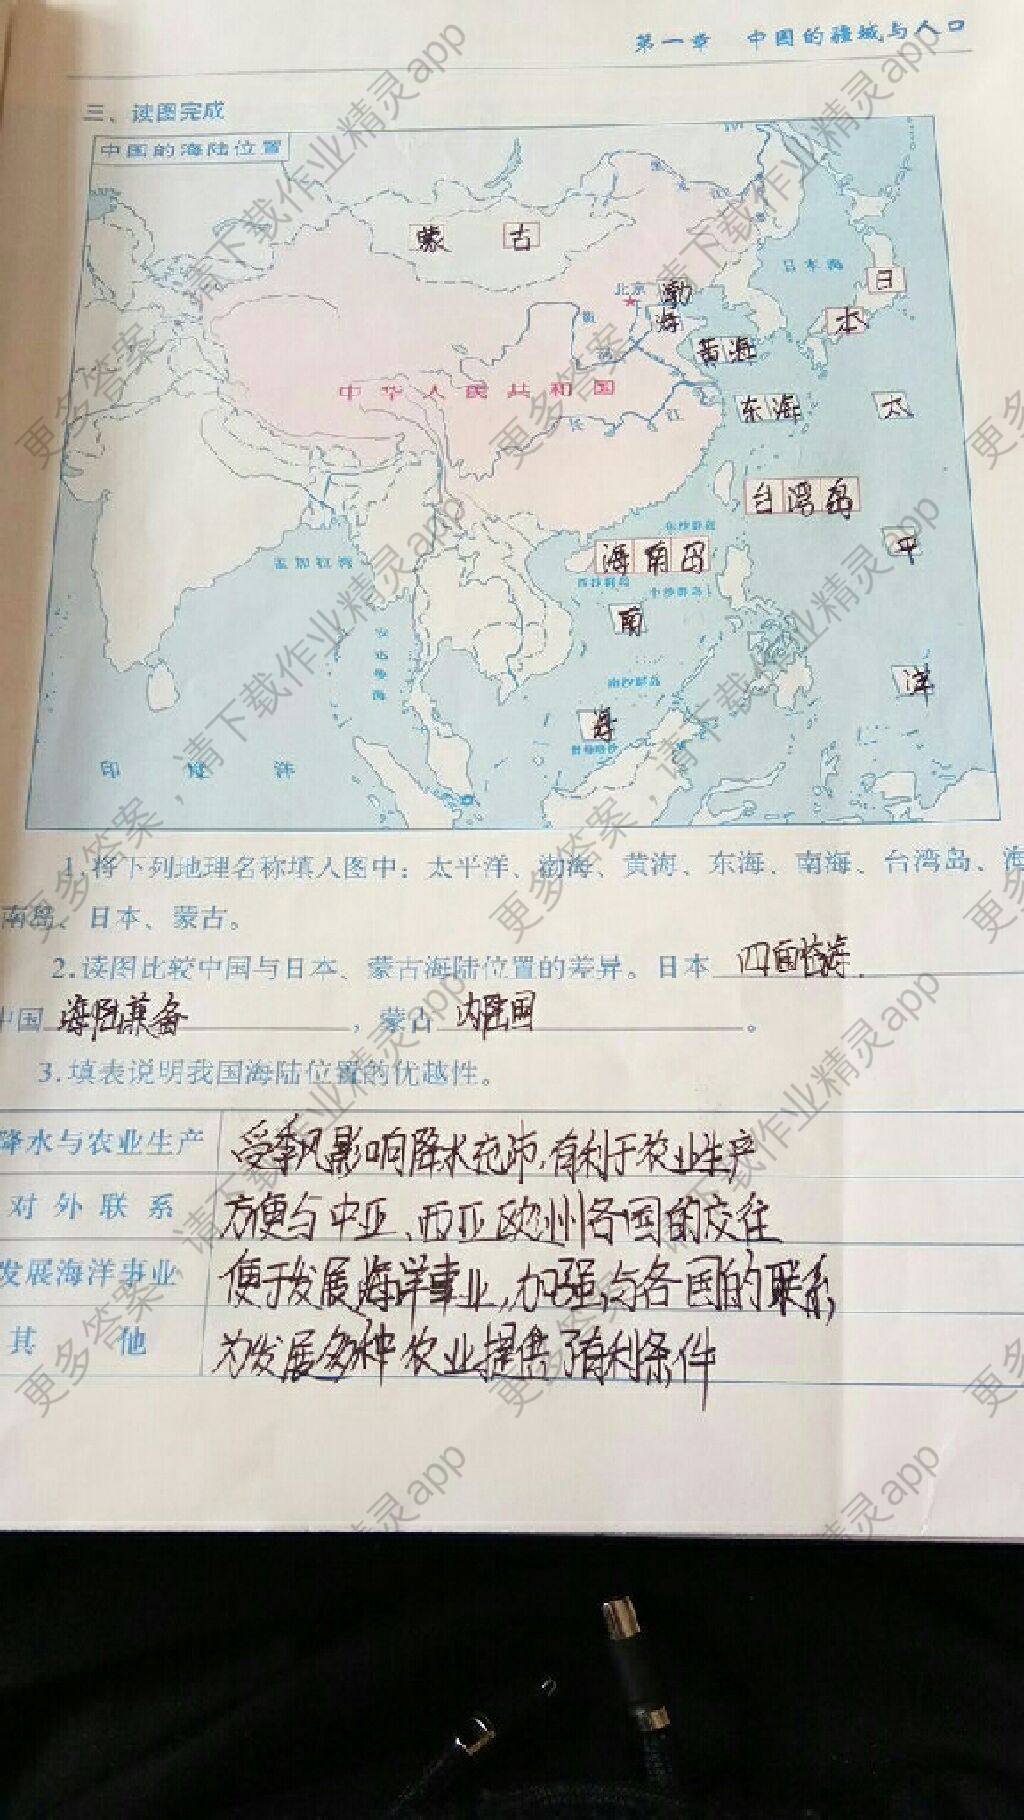 第一章 中国的疆域与人口
三、读图完成
中国的海陆位置
蒙 古
日本海
日
本
北京
渤
海
黄
河
黄海
中华人民共和国
东海
太
长
江
台湾岛
东沙群岛
平
孟加拉湾
海南岛
西沙群岛
中沙群岛
南
安达曼海
南沙群岛
洋
海
曾母暗沙
印度洋
1.将下列地理名称填入图中：太平洋、渤海、黄海、东海、南海、台湾岛、海
南岛、日本、蒙古。
2.读图比较中国与日本、蒙古海陆位置的差异。日本 四面临海
中国 海陆兼备 ，蒙古 内陆国 。
3.填表说明我国海陆位置的优越性。
降水与农业生产 受季风影响降水充沛,有利于农业生产
对外联系 方便与中亚、西亚欧州各国的交往
发展海洋事业 便于发展海洋事业,加强与各国的联系
其他 为发展多种农业提供了有利条件
更多答案，请下载作业精灵app